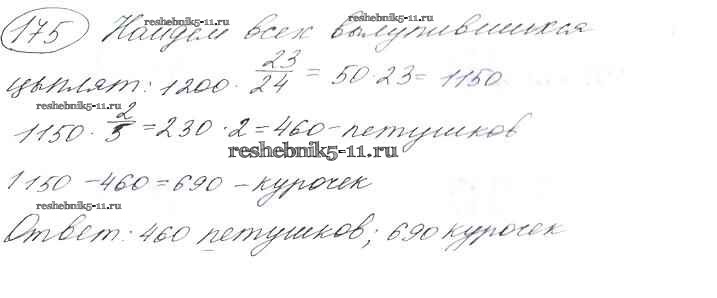 reshebnik5-11.ru reshebnik5-11.ru
175 Найдем всех вылупившихся
цыплят: 1200 · 23/24 = 50 · 23 = 1150
reshebnik5-11.ru
1150 · 2/5 = 230 · 2 = 460 – петушков
reshebnik5-11.ru
1150 – 460 = 690 – курочек
reshebnik5-11.ru
Ответ: 460 петушков; 690 курочек